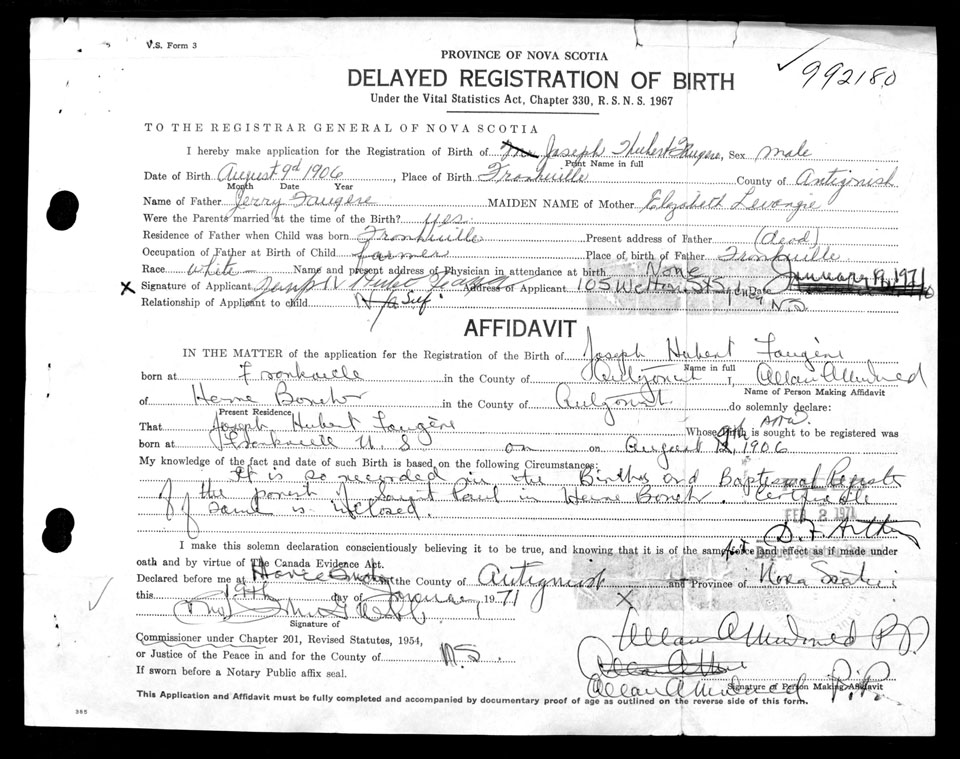 V.S. Form 3
PROVINCE OF NOVA SCOTIA
992180
DELAYED REGISTRATION OF BIRTH
Under the Vital Statistics Act, Chapter 330, R.S.N.S. 1967
TO THE REGISTRAR GENERAL OF NOVA SCOTIA
I hereby make application for the Registration of Birth of Joseph Hubert Faugere, Sex male
Print Name in full
Date of Birth August 9d 1906, Place of Birth Frankville County of Antigonish
Month Date Year
Name of Father Jerry Faugere MAIDEN NAME of Mother Elizabeth Levangie
Were the Parents married at the time of the Birth? yes.
Residence of Father when Child was born Frankville Present address of Father (dead)
Occupation of Father at Birth of Child farmer Place of birth of Father Frankville
Race white Name and present address of Physician in attendance at birth None
Signature of Applicant Joseph Address of Applicant 105 Welton St Syd Date January 19, 1971
Relationship of Applicant to child Self N.S
AFFIDAVIT
IN THE MATTER of the application for the Registration of the Birth of Joseph Hubert Faugère
Name in full
born at in the County of I, Allan
Name of Person Making Affidavit
of in the County of do solemnly declare:
Present Residence
That Joseph Hubert Faugère Whose birth is sought to be registered was
born at on August 1906
My knowledge of the fact and date of such Birth is based on the following Circumstances:
It is so recorded in the Births and Baptismal
of the of Saint Paul in Certificate
of same is inclosed.
FEB 2 1971
I make this solemn declaration conscientiously believing it to be true, and knowing that it is of the same force and effect as if made under
oath and by virtue of The Canada Evidence Act.
Declared before me at the County of Antigonish and Province of Nova Scotia
this 19th day of January, 1971
X
Signature of
Commissioner under Chapter 201, Revised Statutes, 1954,
or Justice of the Peace in and for the County of N.S.
If sworn before a Notary Public affix seal.
Allan P.P.
Signature of Person Making Affidavit
This Application and Affidavit must be fully completed and accompanied by documentary proof of age as outlined on the reverse side of this form.